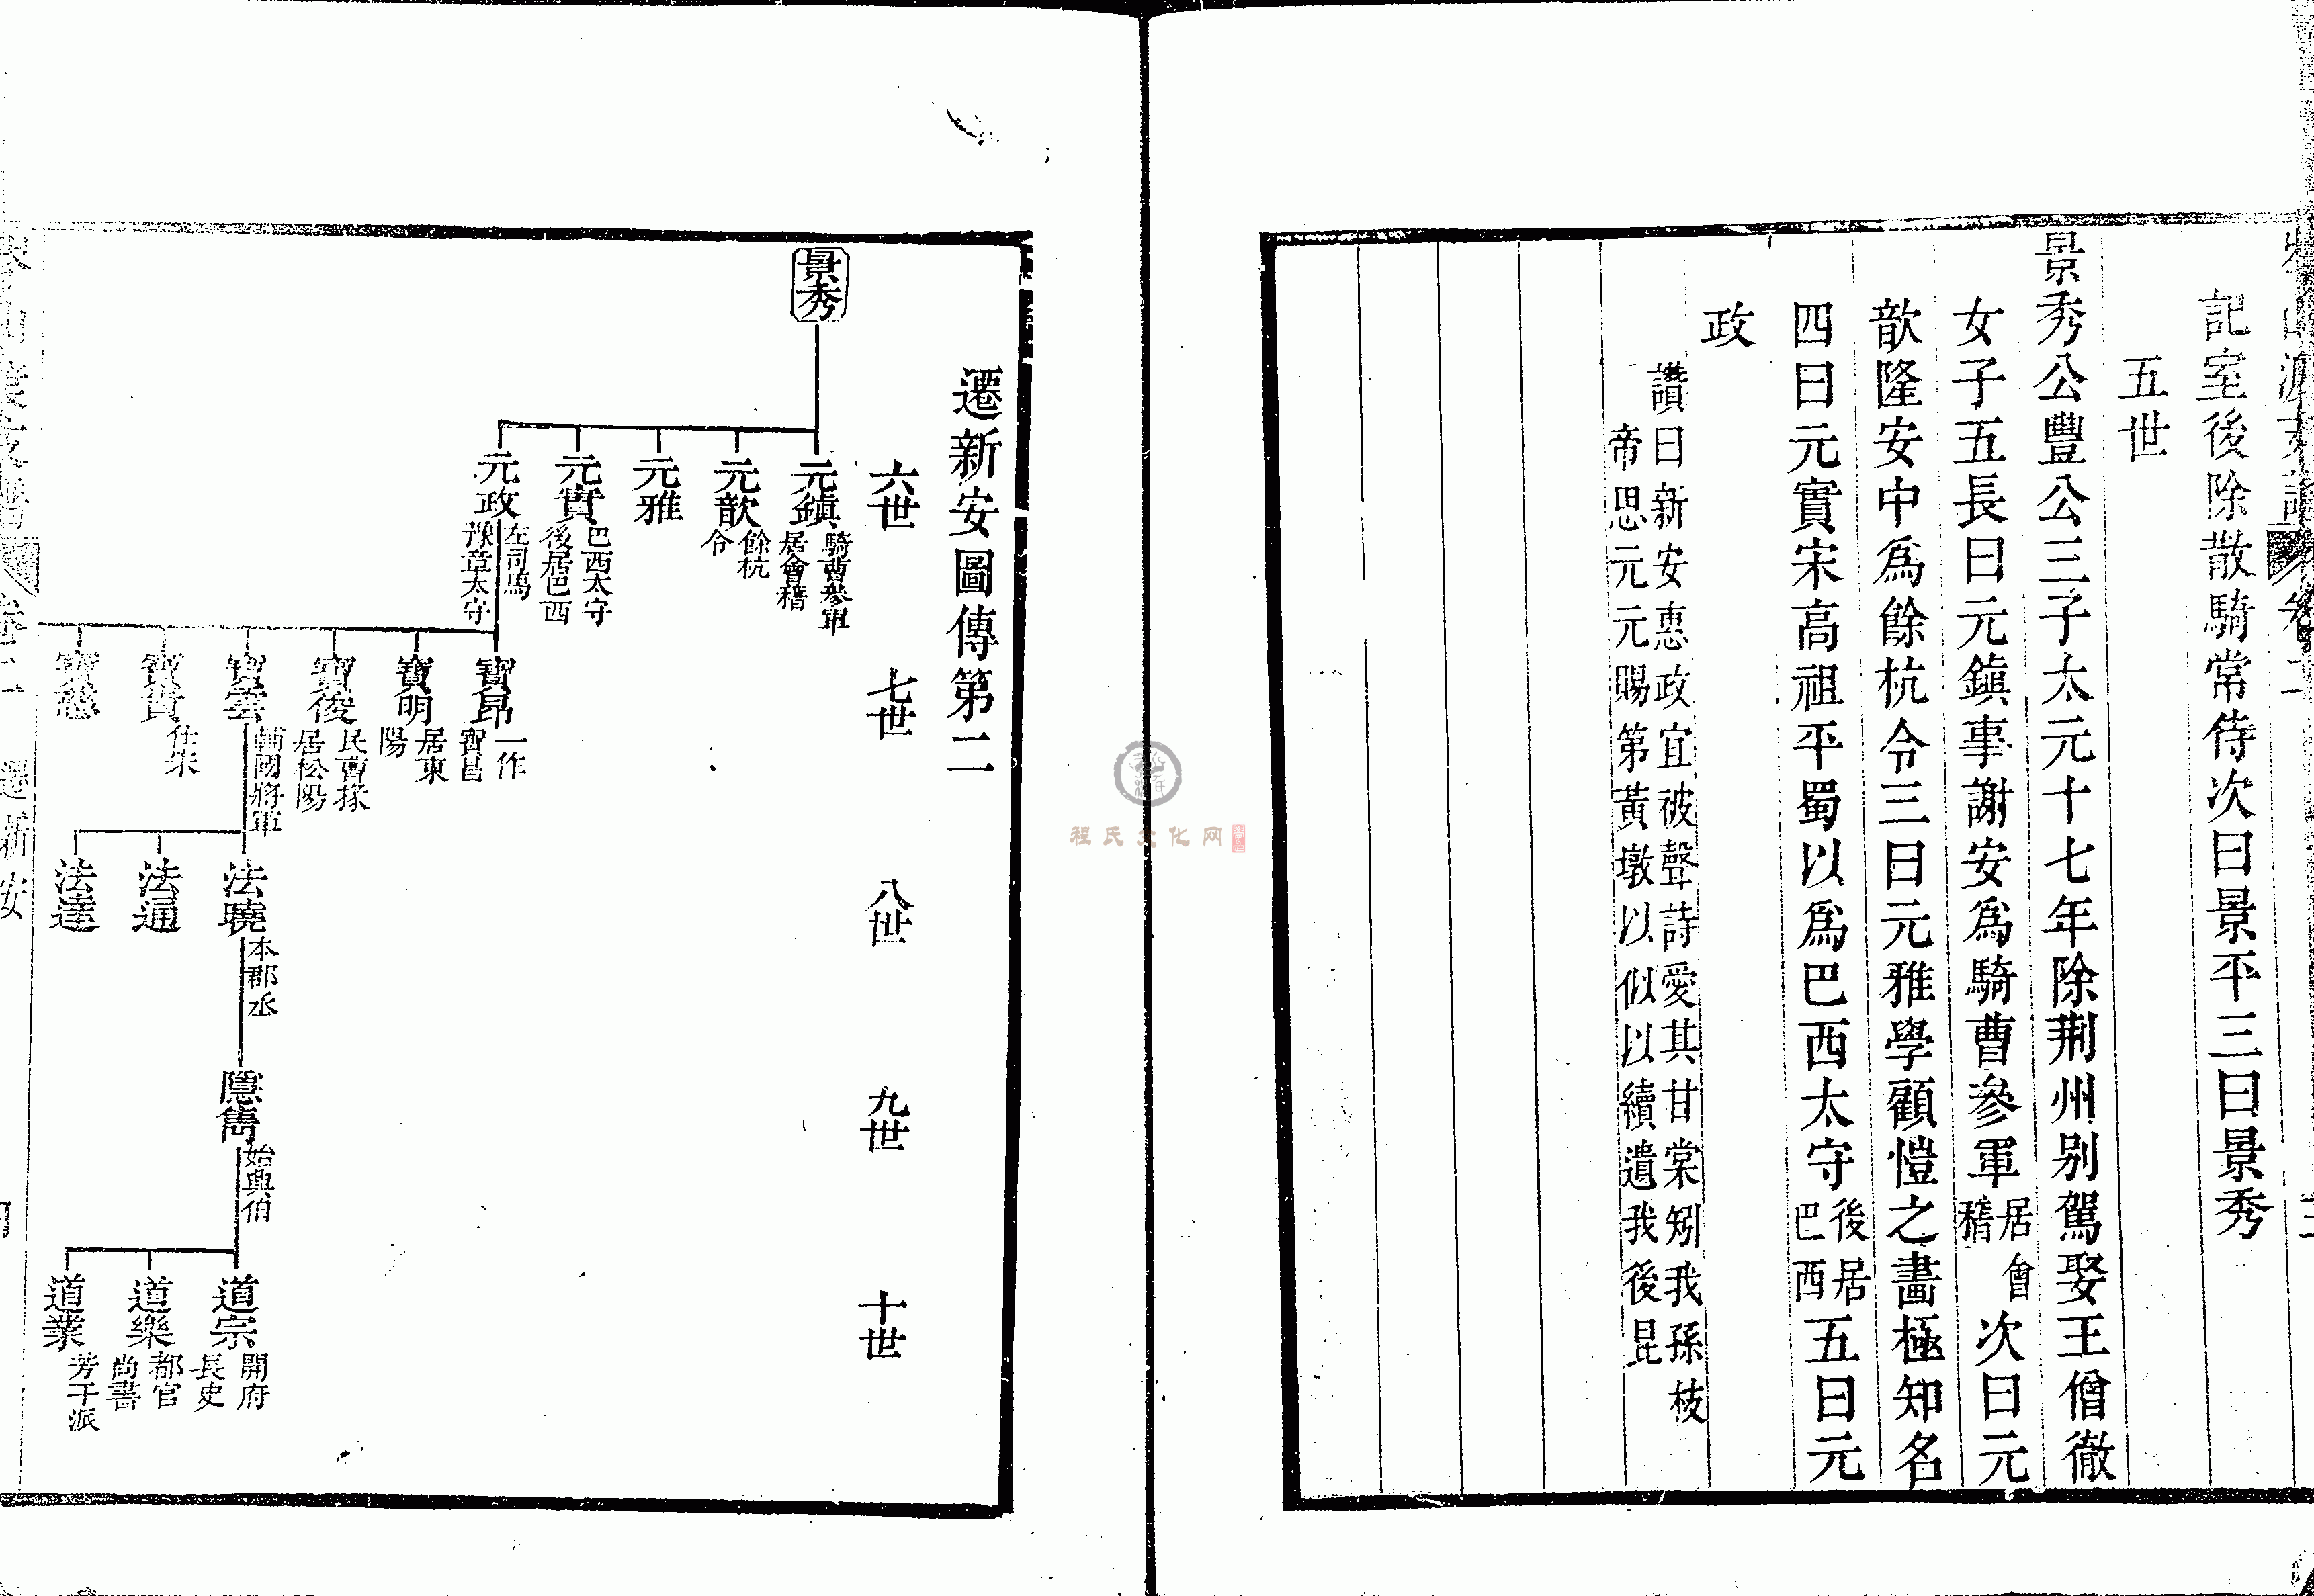 記室後除散騎常侍次曰景平三曰景秀
五世
景秀公豐公三子太元十七年除荆州别駕娶王僧徹
女子五長曰元鎮事謝安爲騎曹參軍居會稽次曰元
歆隆安中爲餘杭令三曰元雅學顧愷之畵極知名
四曰元實宋高祖平蜀以爲巴西太守後居巴西五曰元
政
讚曰新安惠政宜被聲詩愛其甘棠矧我孫枝
帝思元元賜第黃墩以似以續遺我後昆
遷新安圖傳第二
六世
七世
八世
九世
十世
景秀
元鎮 騎曹參軍居會稽
元歆 餘杭令
元雅
元實 巴西太守後居巴西
元政 左司馬豫章太守
寶昂 一作寶昌
寶明 居東陽
寶俊 民曹掾居松陽
寶雲 輔國將軍
寶貴 仕宋
寶慈
法曉 本郡丞
法通
法達
隱雋 始興伯
道宗 開府長史
道樂 都官尚書
道業 芳干派
遷新安
程氏文化网